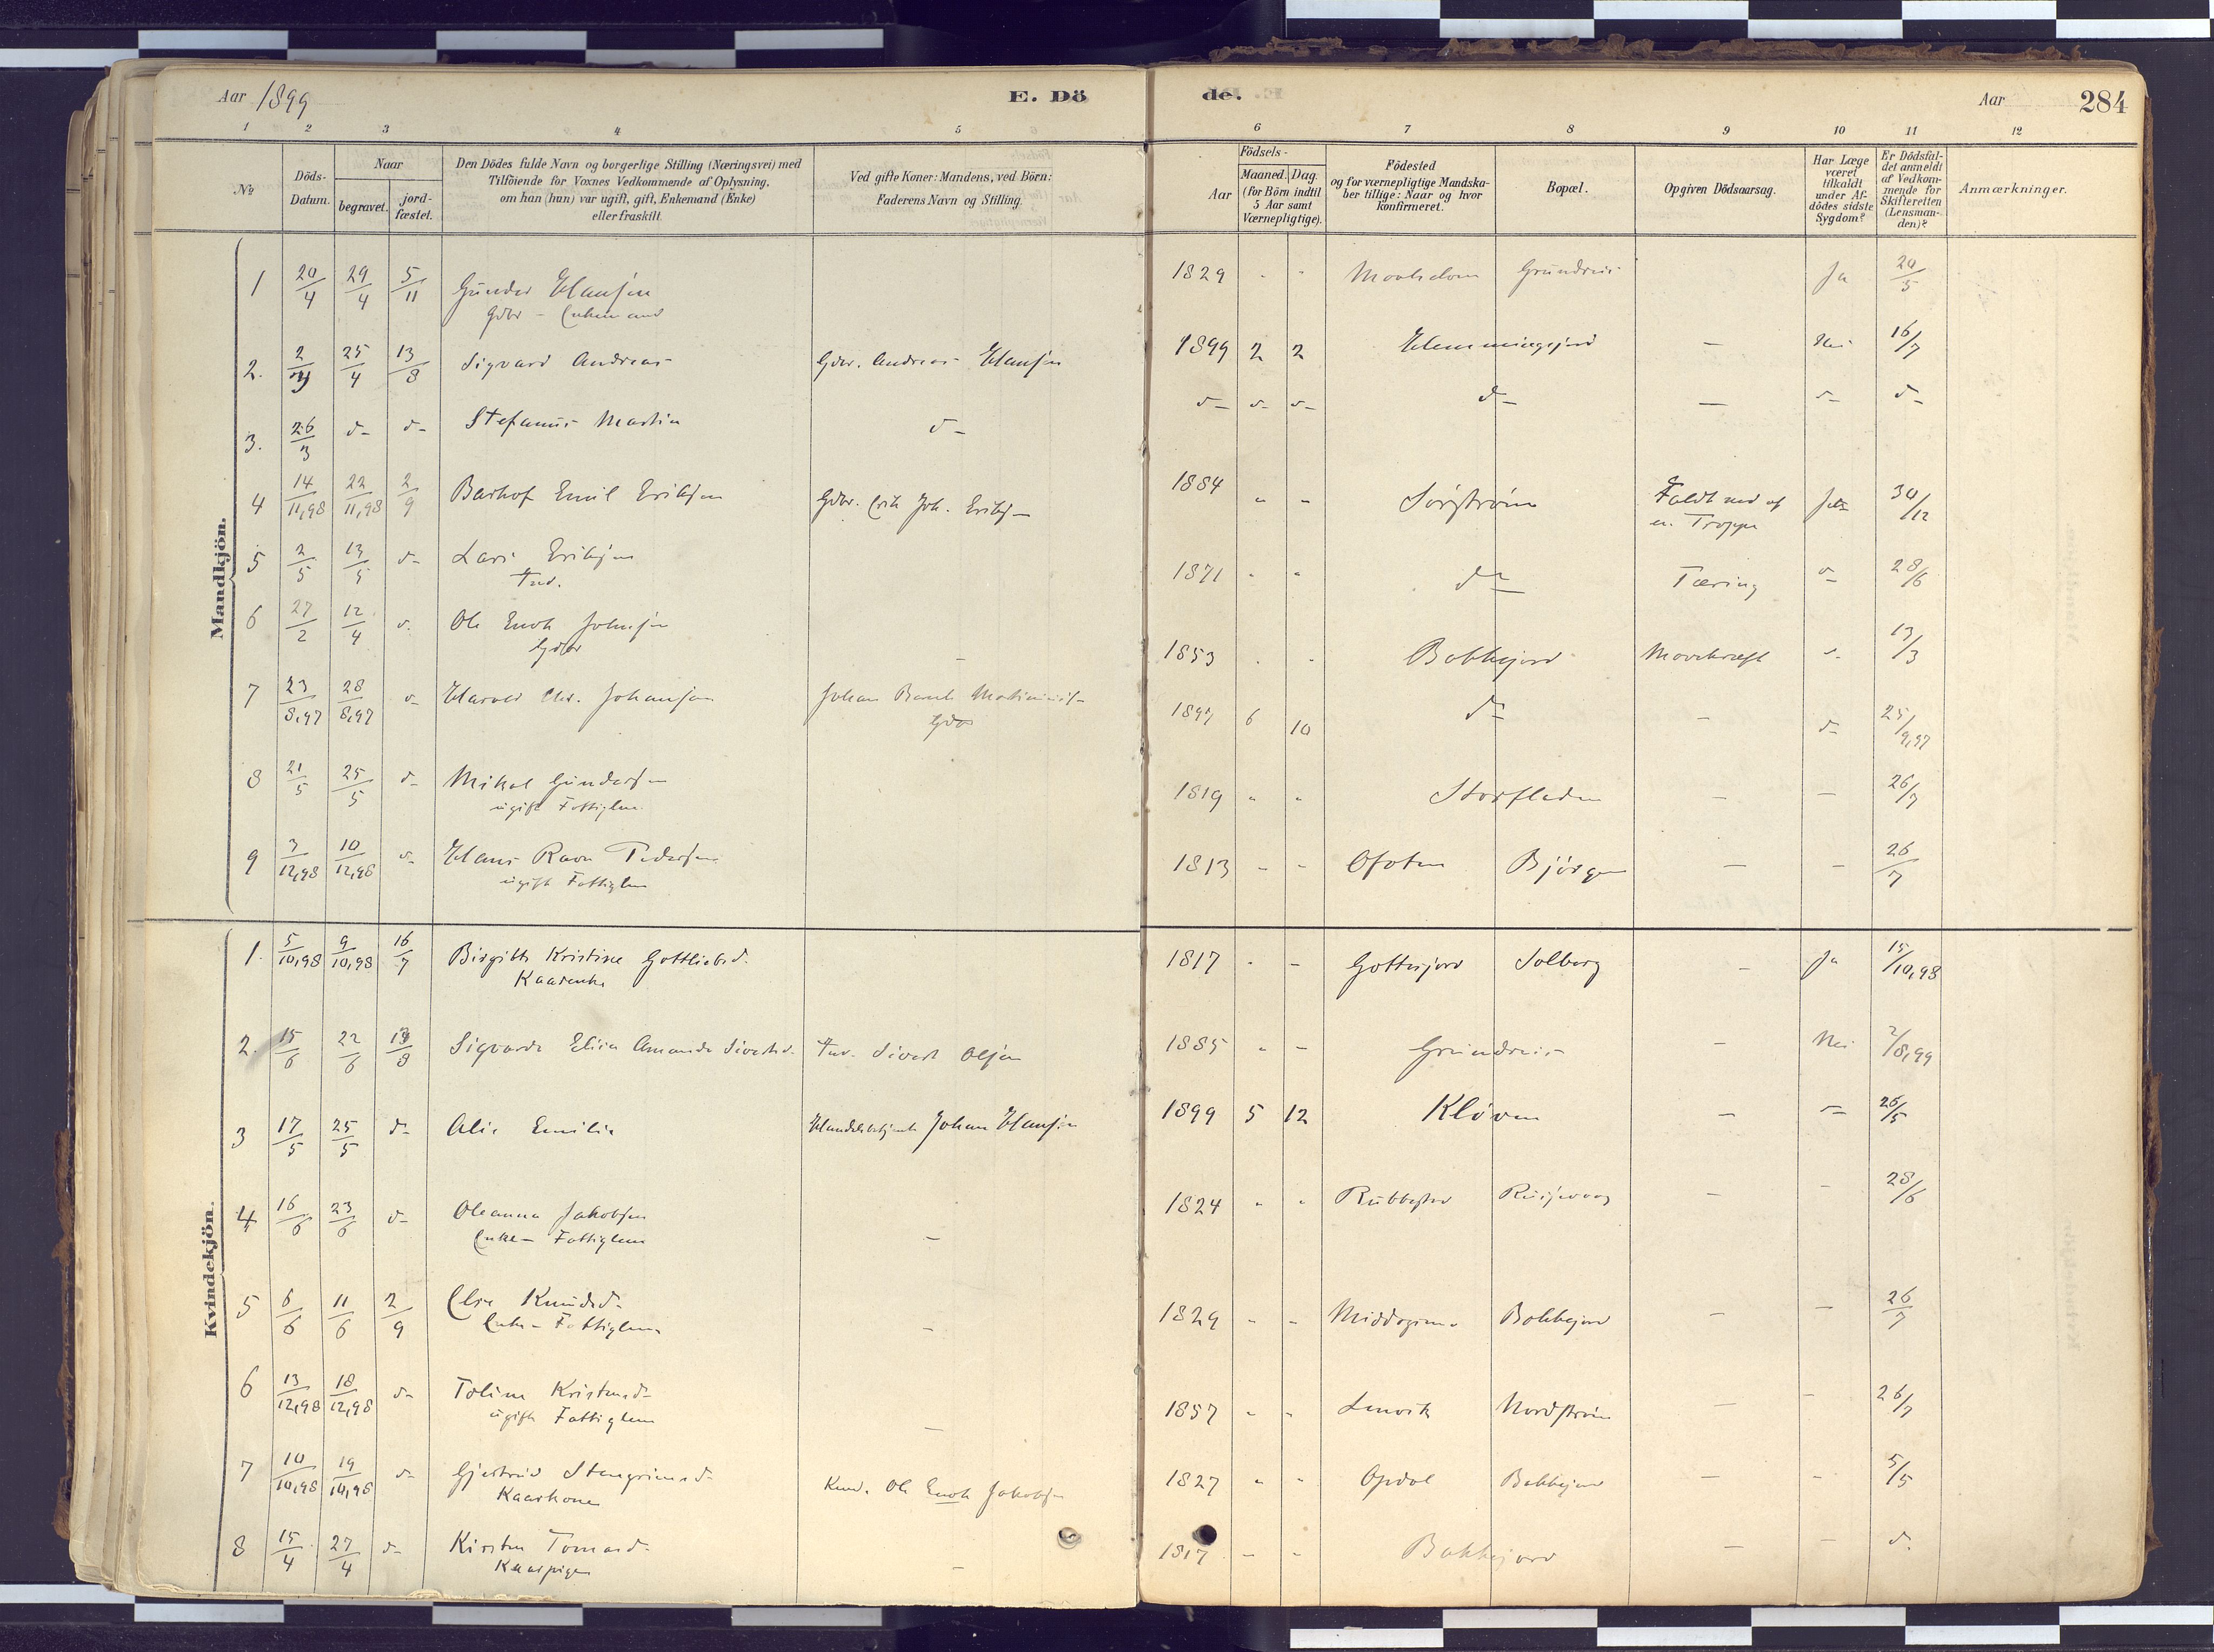 Aar 1899
E. Dö de.
Aar
284
1 2 3 4 5 6 7 8 9 10 11 12
No
Döds-Datum.
Naar
begravet.
jord-fæstet.
Den Dödes fulde Navn og borgerlige Stilling (Næringsvei) med
Tilföiende for Voxnes Vedkommende af Oplysning,
om han (hun) var ugift, gift, Enkemand (Enke)
eller fraskilt.
Ved gifte Koner: Mandens, ved Börn:
Faderens Navn og Stilling.
Födsels-
Aar
Maaned. Dag.
(for Börn indtil
5 Aar samt
Værnepligtige).
Födested
og for værnepligtige Mandska-
ber tillige: Naar og hvor
konfirmeret.
Bopæl.
Opgiven Dödsaarsag.
Har Læge
været
tilkaldt
under Af-
dödes sidste
Sygdom?
Er Dödsfal-
det anmeldt
af Vedkom-
mende for
Skifteretten
(Lensman-
den)?
Anmærkninger.
Mandkjön.
1 20/4 29/4 5/11 Gunder Hansen 1829 " " Grundreis Ja 20/5
Gdbr - Enkemand
2. 25/4 13/8 Sigvard Andreas Gdbr. Andreas Hansen 1899 2 2 Hemmingsjord — Nei 16/7
3. 26/3 d- d- Stefanus Martin d- d- d- d- d- — d- d-
4 14/11,98 22/11,98 2/9 Emil Eriksen Gdbr. Erik Joh. Eriks- 1884 " " Sörström Faldt ned af 30/12
en Troppe
5 2/5 13/5 d- Lars Eriksen 1871 " " do Tæring d- 28/6
Ind.
6 27/2 12/4 d. Ole Enok Johnsen - 1853 " " Bakkejord d. 13/3
Gdbr
7 23/8,97 28/8,97 d- Harald Chr. Johansen Johan Martinius- 1897 6 10 do - d- 25/9,97
Gdbr
8 21/5 25/5 d- Mikal Gundersen 1819 " " Storfladen - - 26/7
ugift Fattiglem.
9 3/12,98 10/12,98 d- Hans Ravn Pedersen 1813 - - Ofoten Björgen — - 26/7
ugift Fattiglem
Kvindekjön.
1. 5/10,98 9/10,98 16/7 Birgitte Kristine Gottliebsd. 1817 - - Gottesjord Solberg - Ja 15/10,98
Kaarenke
2. 15/6 22/6 13/8 Sigvarda Elisa Amanda Sivertsd. Ind. Sivert Olsen 1885 " - Grundreis - Nei 2/8,99
3 17/5 25/5 d- Alie Emilie Handelsbetjent Johan Hansen 1899 5 12 Klöven - d- 26/5
4 16/6 23/6 d- Oleanna Jakobsen - 1824 " " - - 28/6
Enke - Fattiglem
5 6/6 11/6 2/9 Else Knudsd- - 1829 - - Bakkejord - - 26/7
Enke - Fattiglem
6 13/12,98 18/12,98 d- Toline Kristensd- - 1857 " " Lenvik Nordström - - 26/7
ugift Fattiglem
7 10/10,98 19/10,98 d- Gjertrud Stengrimsd- Kaard. Ole Enok Jakobsen 1827 " " Opdal Bakkejord — - 5/5
Kaarkone
8 15/4 27/4 d- Kirsten Tomasd- - 1817 - - Bakkejord - - d.
Kaarpige